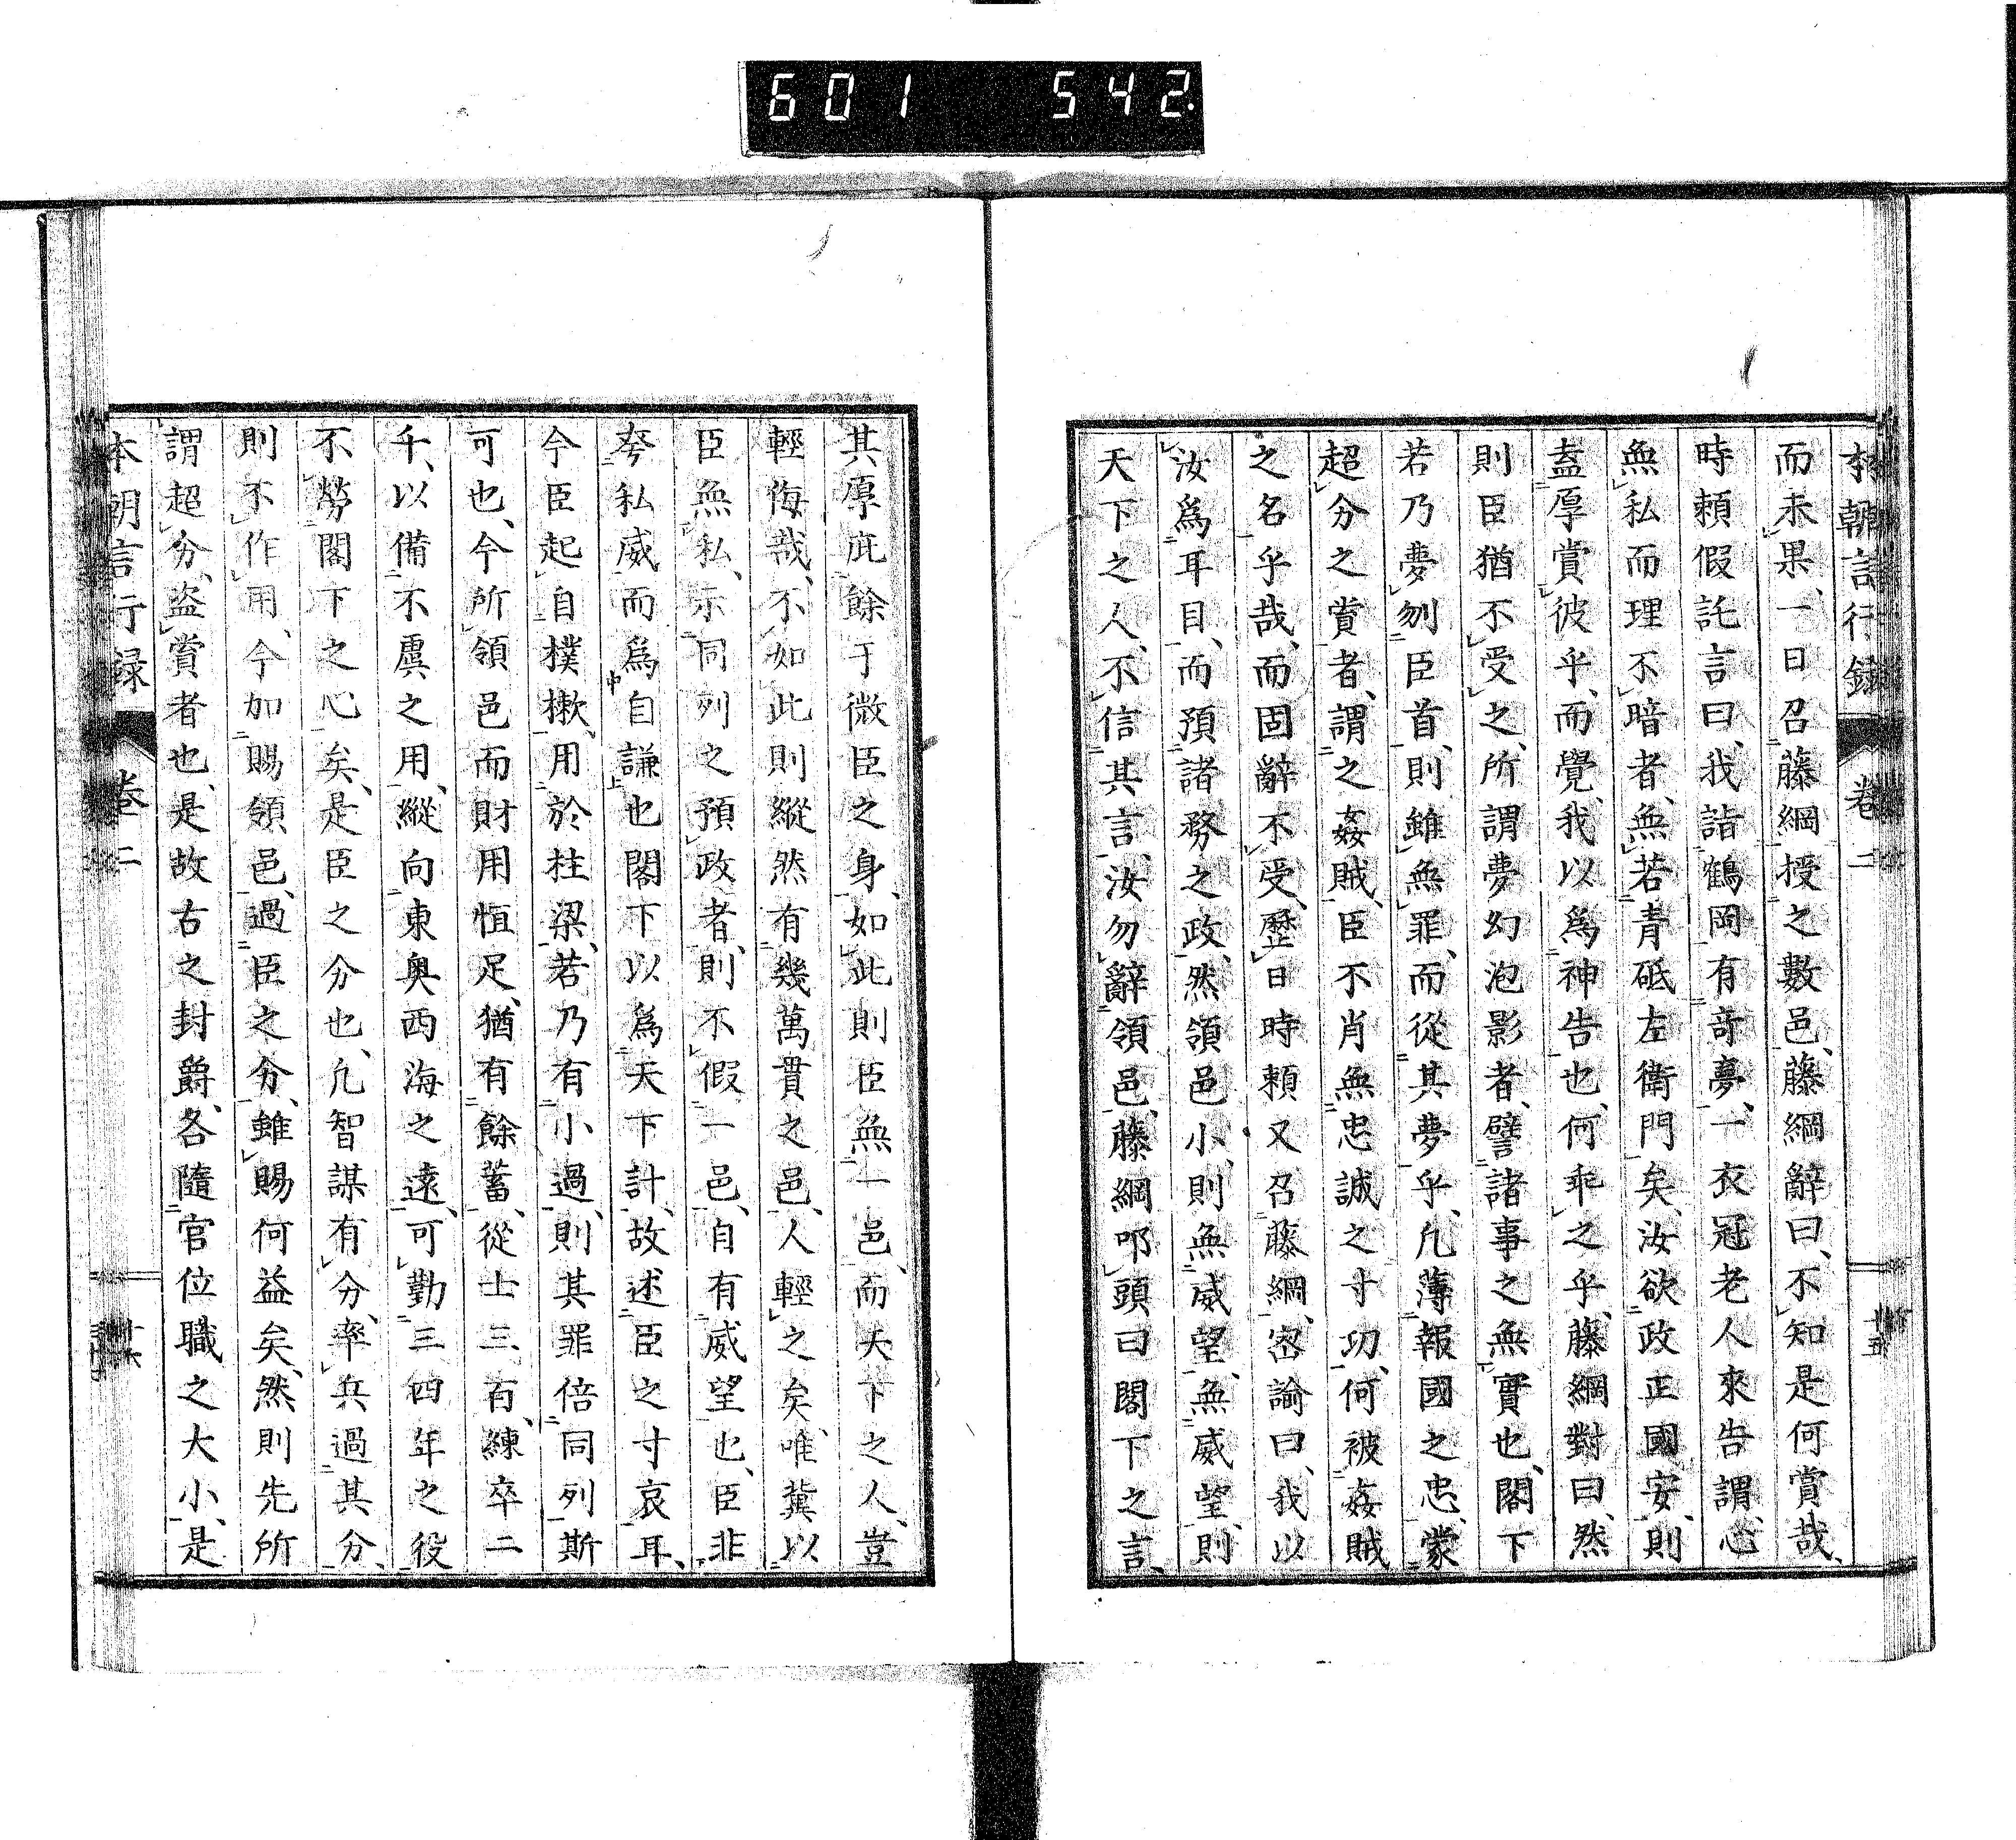 601 542
本朝言行錄 卷二 十五
而未果、一日召藤綱授之數邑、藤綱辭曰、不知是何賞哉、
時賴假託言曰、我詣鶴岡有奇夢、一衣冠老人來告謂、心
無私而理不暗者、無若青砥左衛門矣、汝欲政正國安、則
盍厚賞彼乎、而覺、我以爲神告也、何乖之乎、藤綱對曰、然
則臣猶不受之、所謂夢幻泡影者、譬諸事之無實也、閣下
若乃夢刎臣首、則雖無罪、而從其夢乎、凢薄報國之忠、蒙
超分之賞者、謂之姦賊、臣不肖無忠誠之寸功、何被姦賊
之名乎哉、而固辭不受、歷日時賴又召藤綱、密諭曰、我以
汝爲耳目、而預諸務之政、然領邑小、則無威望、無威望、則
天下之人、不信其言、汝勿辭領邑、藤綱叩頭曰閣下之言、
其厚庇餘于微臣之身、如此則臣無一邑、而天下之人、豈
輕侮哉、不如此則縱然有幾萬貫之邑、人輕之矣、唯冀以
臣無私、示同列之預政者、則不假一邑、自有威望也、臣非
夸私威而爲自謙也閣下以爲天下計、故述臣之寸哀耳、
今臣起自樸樕、用於柱梁、若乃有小過、則其罪倍同列斯
可也、今所領邑而財用恒足、猶有餘蓄、從士三百、練卒二
千、以備不虞之用、縱向東奥西海之遠、可勤三四年之役
不勞閣下之心矣、是臣之分也、凢智謀有分、率兵過其分、
則不作用、今加賜領邑、過臣之分、雖賜何益矣、然則先所
謂超分、盜賞者也、是故古之封爵、各隨官位職之大小、是
本朝言行録 卷二 十六